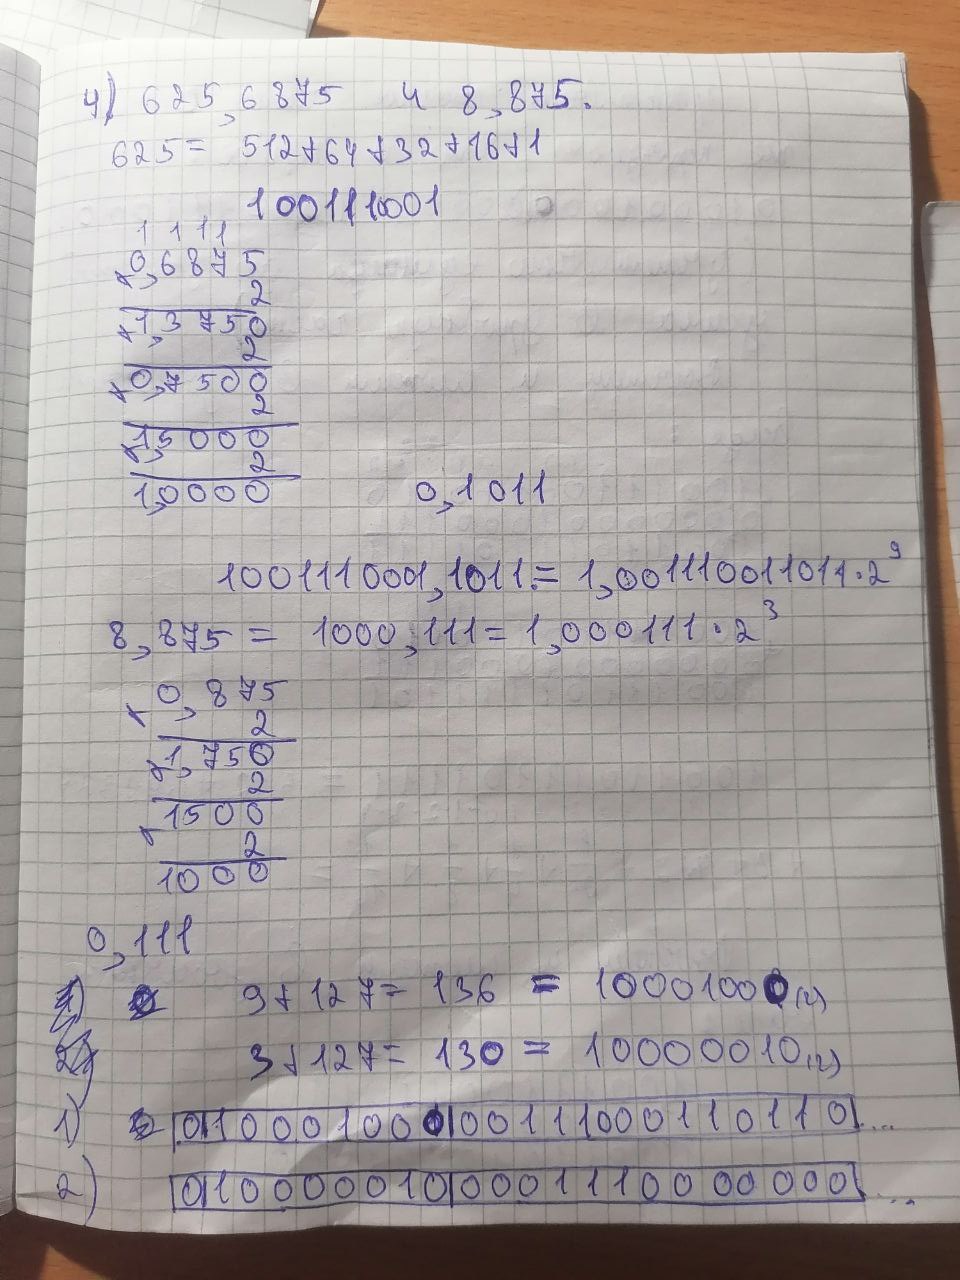 4) 625,6875 и 8,875.
625 = 512+64+32+16+1
1001110001
1 1 11
× 0,6875
2
× 1,3750
2
× 0,7500
2
× 1,5000
2
1,0000 0,1011
1001110001,1011 = 1,0011100011011·2⁹
8,875 = 1000,111 = 1,000111·2³
× 0,875
2
× 1,750
2
× 1500
2
1000
0,111
9+127= 136 = 10001000(2)
3+127= 130 = 10000010(2)
1) 0|10001000|00111000110110...
2) 0|10000010|00011100000000...